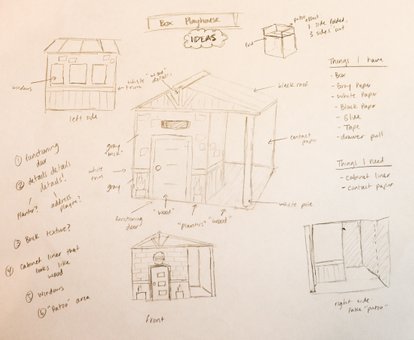 Box Playhouse
IDEAS
patio
1 side folded,
3 sides cut
windows
white "wood" details
trim
left side
black roof
gray
"brick"
white
trim
gray
contact
paper
functioning
door
"wood"
"plants"
"wood"
white pole
Things I have
- Box
- Gray Paper
- White Paper
- Black Paper
- Glue
- Tape
- drawer pull
Things I need
- cabinet liner
- contact paper
① functioning
door
② details details
details!
planter?
address
plaque?
③ Brick texture?
④ Cabinet liner that
looks like
wood
⑤ windows
⑥ "Patio" area
front
right side
fake "patio"